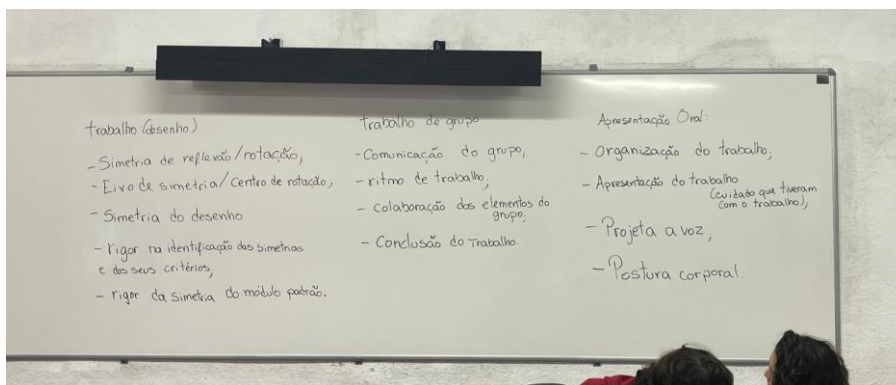 trabalho (desenho)
- Simetria de reflexão/rotação,
- Eixo de simetria/centro de rotação,
- Simetria do desenho
- rigor na identificação das simetrias
e dos seus critérios,
- rigor da simetria do módulo padrão.
Trabalho de grupo
- Comunicação do grupo,
- ritmo de trabalho,
- Colaboração dos elementos do
grupo,
- Conclusão do Trabalho
Apresentação Oral:
- Organização do trabalho,
- Apresentação do trabalho
(cuidado que tiveram
com o trabalho),
- Projeta a voz,
- Postura corporal.